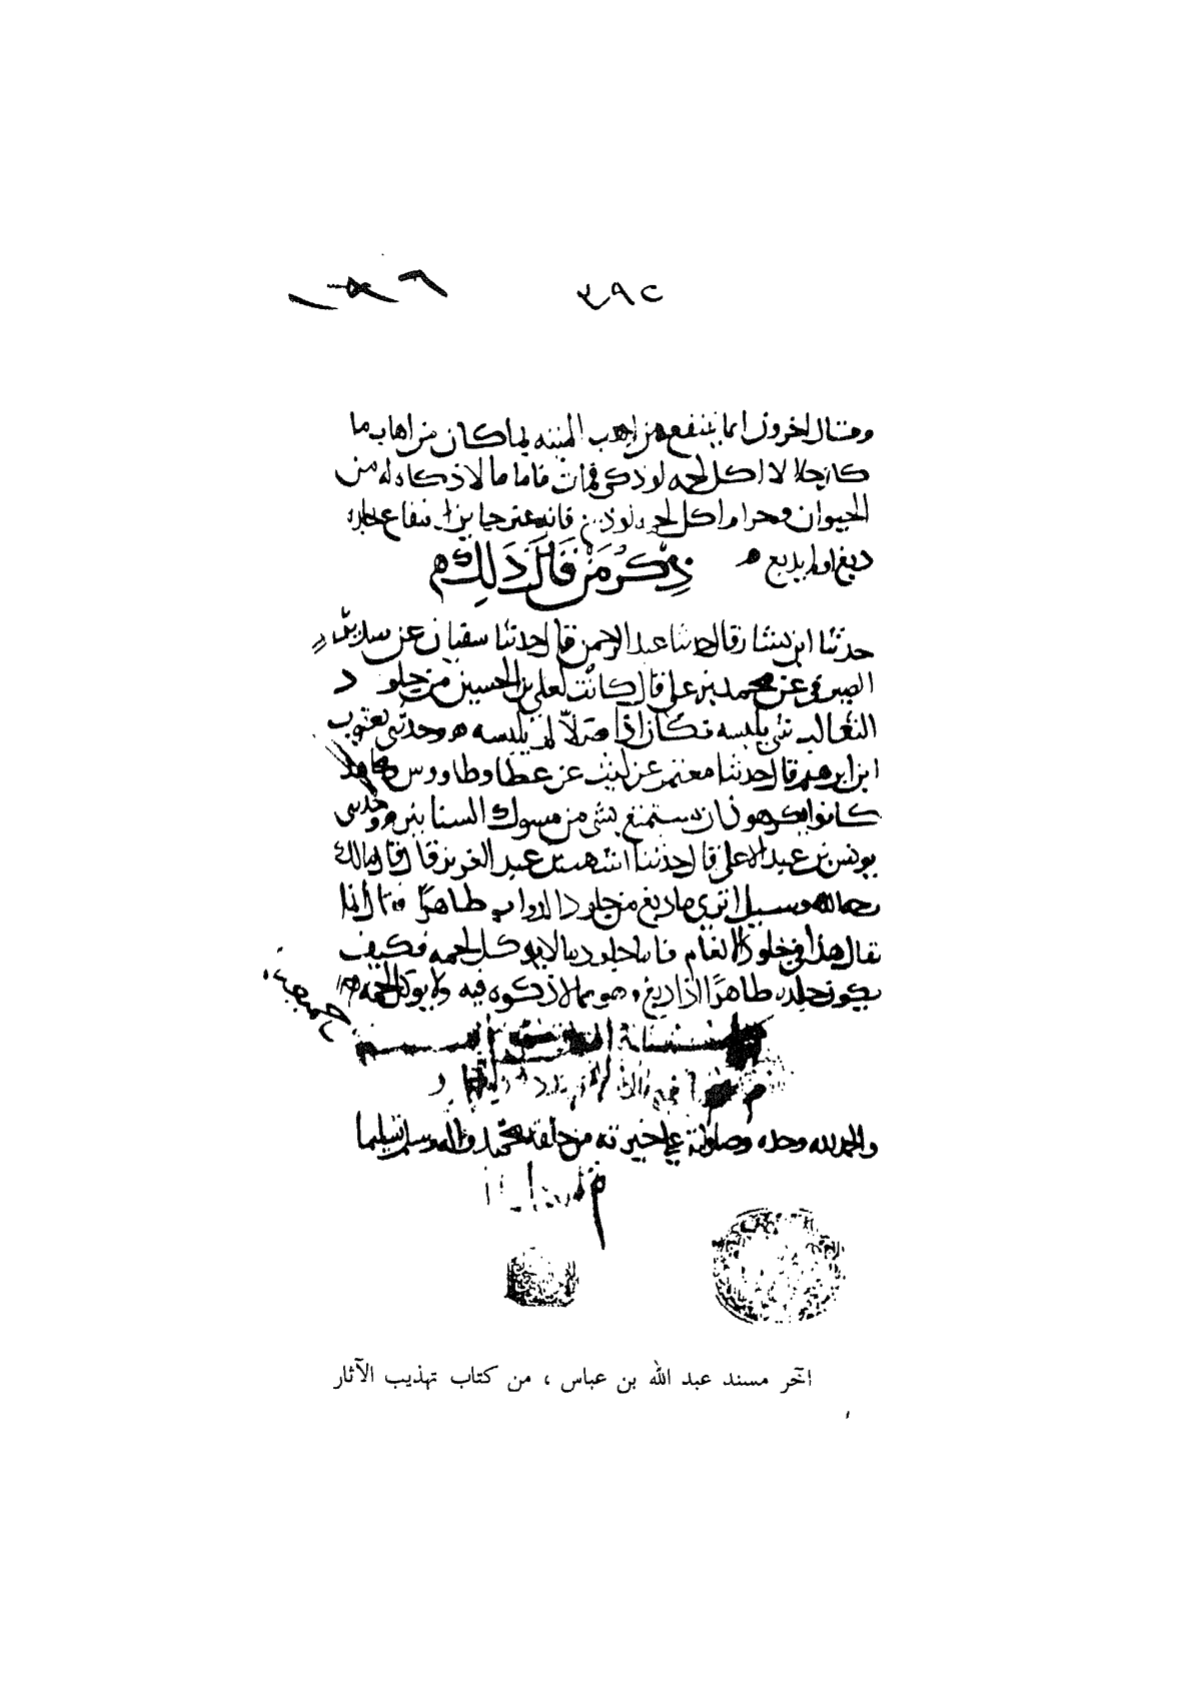 ٣٩٢
وقال اخرون انما ينتفع من اهاب الميتة بما كان من اهاب ما
كان حلالا اكل لحمه لو ذكي فمات فاما ما لا ذكاة له من
الحيوان وحرام اكل لحمه لو ذبح فانه غير جايز الانتفاع بجلده
دبغ او لم يدبغ ه
ذِكْرُ مَنْ قَالَ ذَلِكَ
حدثنا ابن بشار قال حدثنا عبد الرحمن قال حدثنا سفيان عن سدير
الصيرفي عن محمد بن علي قال كانت لعلي بن الحسين من جلود
الثعالب شي يلبسه فكان اذا صلى لم يلبسه ه وحدثني يعقوب
ابن ابرهيم قال حدثنا معتمر عن ليث عن عطا وطاووس ومجاهد
كانوا يكرهون ان يستمتع بشي من مسوك السنانير ه وحدثني
يونس بن عبد الاعلى قال حدثنا اشهب بن عبد العزيز قال قال مالك
وسيل اترى ما دبغ من جلود الدواب طاهرًا فقال انما
يقال هذا في جلود الانعام فاما جلود ما لا يوكل لحمه فكيف
يكون جلده طاهرًا اذا دبغ وهو مما لا ذكوة فيه ولا يوكل لحمه
والحمد لله وحده وصلواته على خيرته من خلقه محمد واله وسلم تسليما
آخر مسند عبد الله بن عباس ، من كتاب تهذيب الآثار